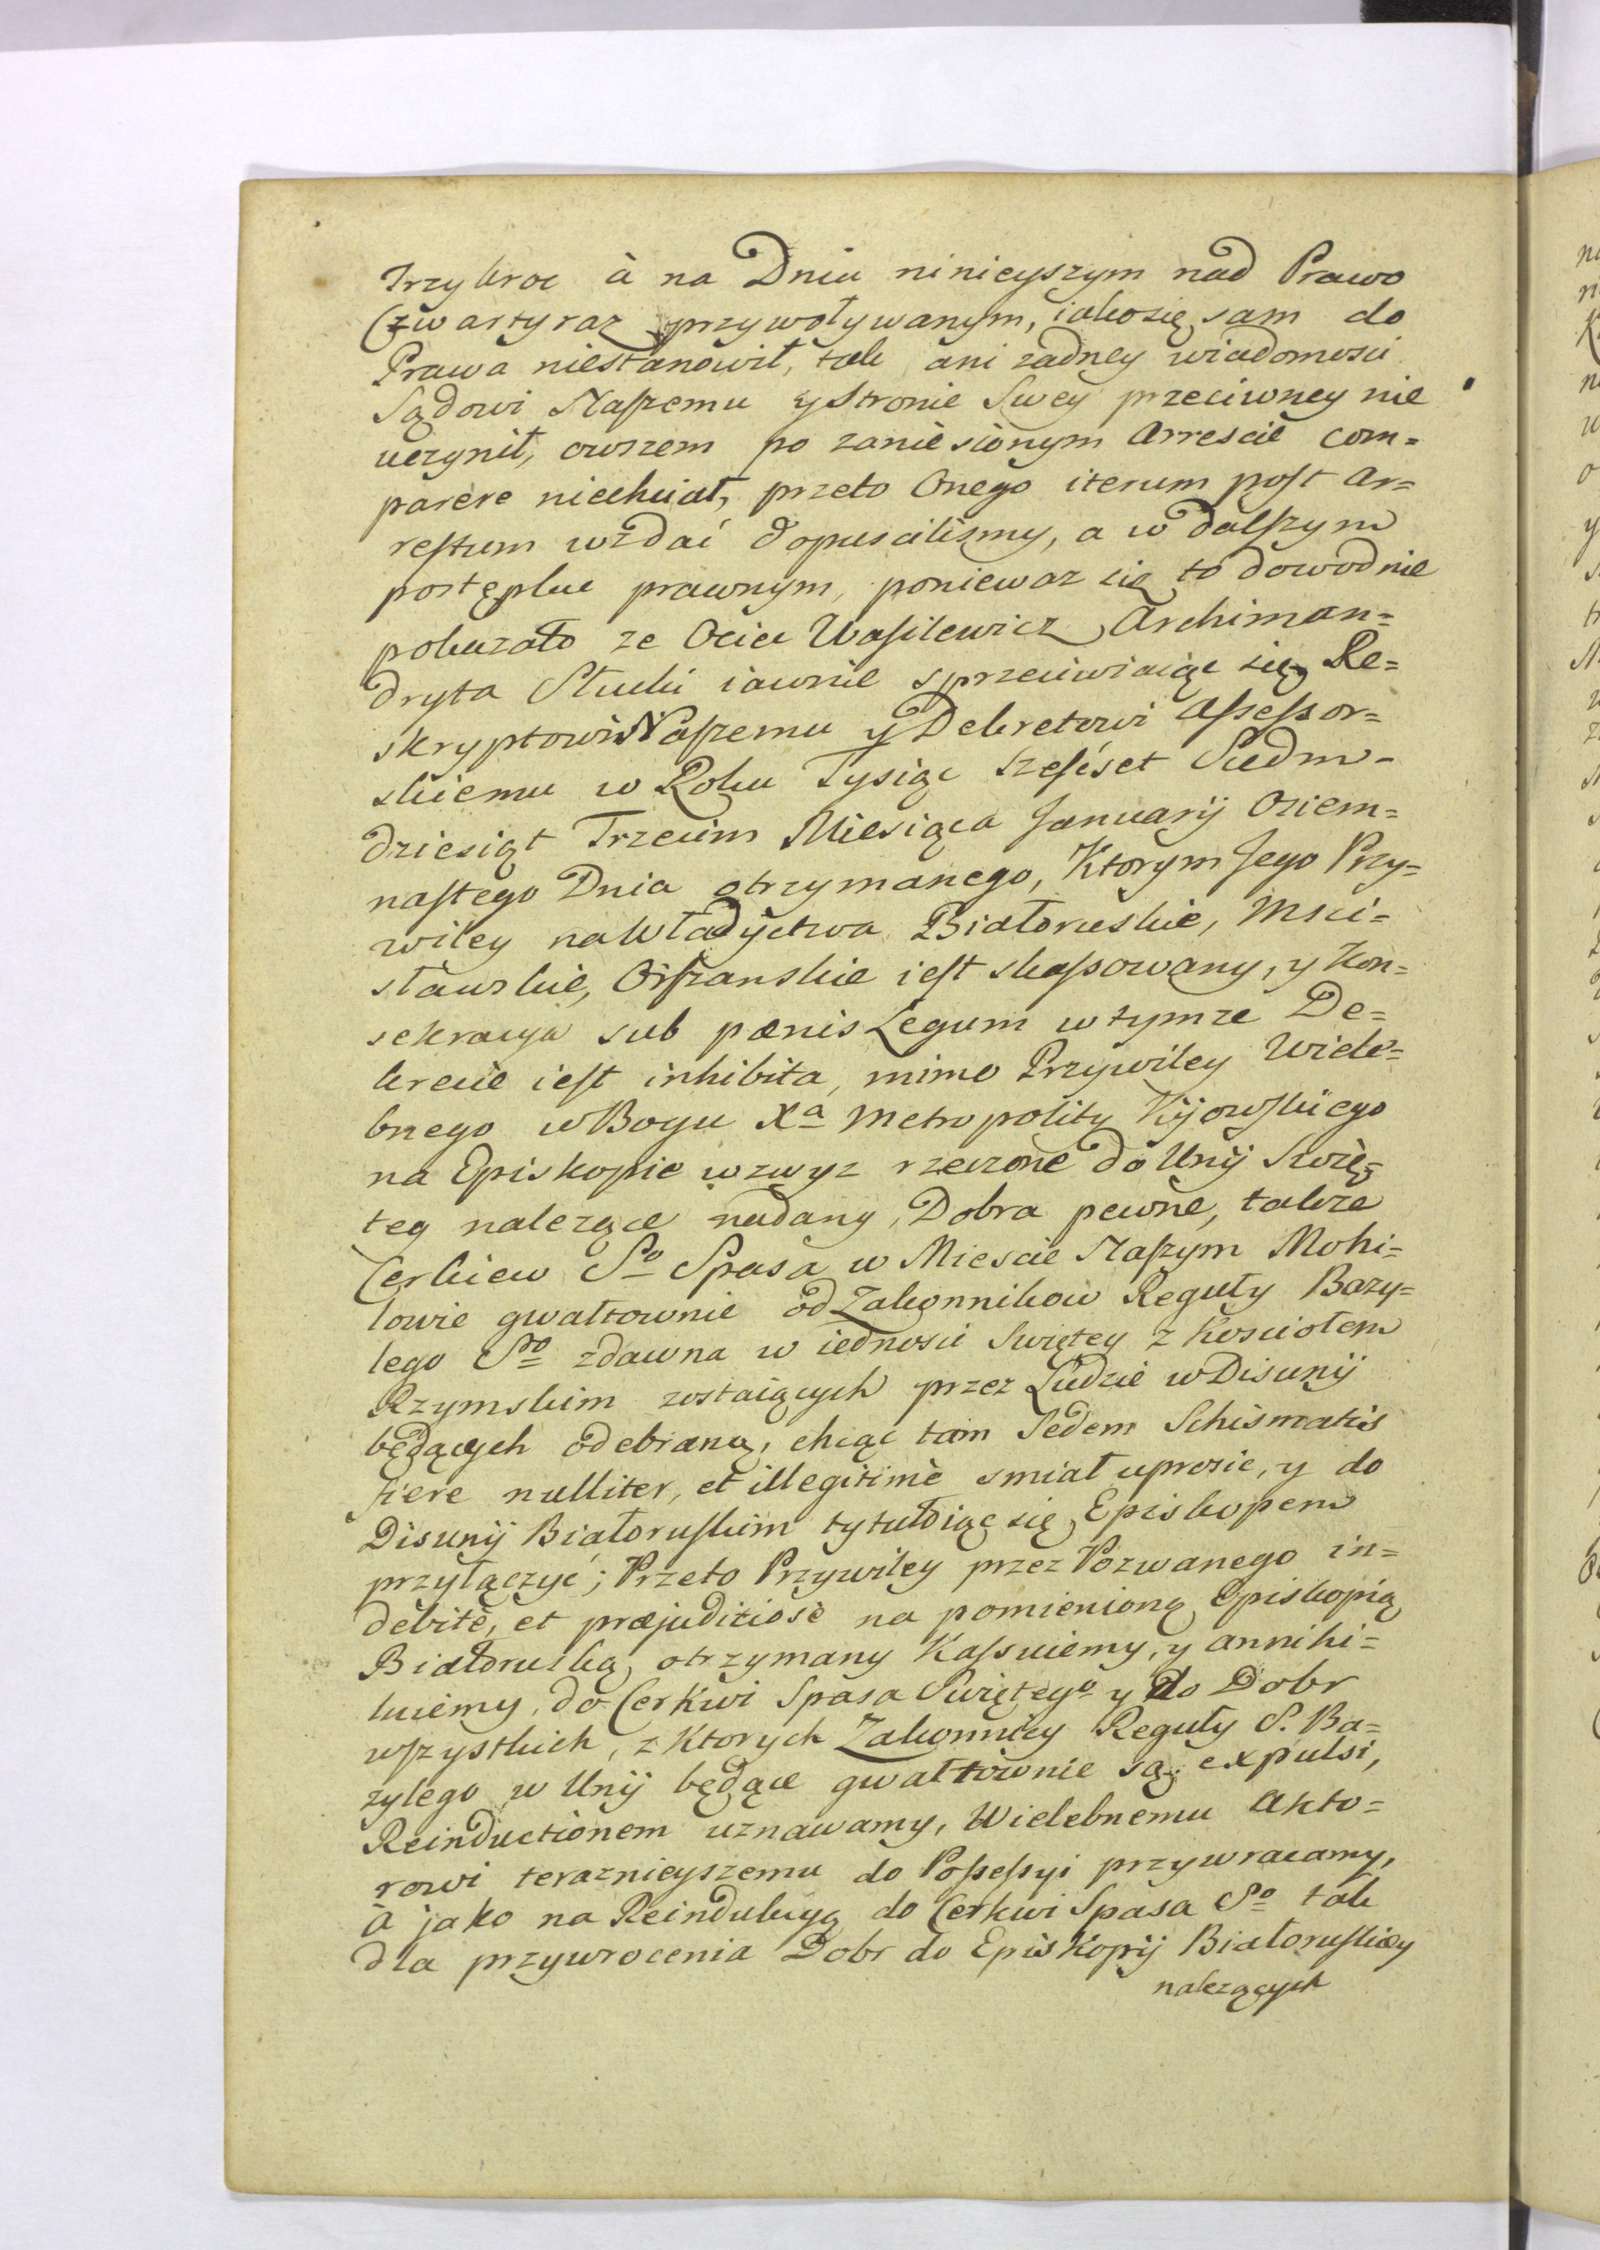 Trzykroc à na Dniu ninieyszym nad Prawo
Czwarty raz przywoływanym, iako się sam do
Prawa niestanowił, tak ani zadney wiadomosci
Sądowi Naszemu y Stronie Swey przeciwney nie
uczynił, owszem po zaniesionym Arrescie com=
parere niechciał, przeto Onego iterum post Ar=
restum wzdać dopuscilismy, a w dalszym
postępku prawnym, poniewaz się to dowodnie
pokazało ze Ociec Wasilewicz Archiman=
dryta Słucki iawnie sprzeciwiaiąc się Re=
skryptowi Naszemu y Dekretowi Assessor=
skiemu w Roku Tysiąc szesćset Siedm=
dziesiąt Trzecim Miesiąca Januarij Osiem=
nastego Dnia otrzymanego, Ktorym Jego Przy=
wiley na Władyctwa Białoruskie, Msci=
sławskie, Orszanskie iest skassowany, y Kon=
sekracya sub pænis Legum w tymze De=
krecie iest inhibita, mimo Przywiley Wiele=
bnego w Bogu Xa Metropolity Kijowskiego
na Episkopie wzwyz rzeczone do Unij Swię=
tey nalezące nadany, Dobra pewne, takze
Cerkiew So Spasa w Miescie Naszym Mohi=
lowie gwałtownie od Zakonnikow Reguły Bazy=
lego Sgo zdawna w iednosci Swiętey z Kosciołem
Rzymskim zostaiących przez Ludzie w Disunij
będących odebraną, chcąc tam Sedem Schismatis
fiere nulliter, et illegitimè smiał uprosic, y do
Disunij Białoruskim tytułuiąc się Episkopem
przyłączyć; Przeto Przywiley przez Pozwanego in=
debitè, et præjudiciosè na pomienioną Episkopią
Białoruską otrzymany Kassuiemy, y annihi=
luiemy, do Cerkwi Spasa Swiętego y do Dobr
wszystkich, z Ktorych Zakonnicy Reguły S. Ba=
zylego w Unij będące gwałtownie są expulsi,
Reinductionem uznawamy, Wielebnemu Akto=
rowi teraznieyszemu do Possessyi przywracamy,
à jako na Reindukcyą do Cerkwi Spasa So tak
dla przywrocenia Dobr do Episkopij Białoruskiey
nalezących